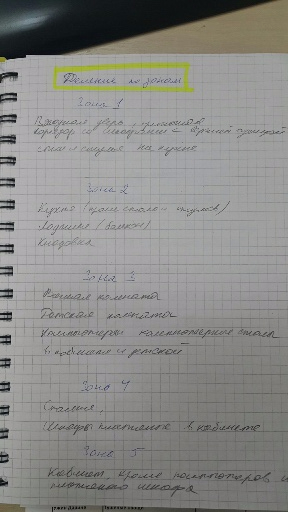 Деление по зонам
Зона 1
Входная дверь,
коридор со шкафами - верхней одеждой
стол и стулья на кухне
Зона 2
Кухня (кроме стола - стульев)
Лоджия (балкон)
Кладовка
Зона 3
Ванная комната
Детская комната
Компьютеры компьютерные столы
в кабинете и детской
Зона 4
Спальня,
Шкафы платяные в кабинете
Зона 5
Кабинет, кроме компьютеров и
платяного шкафа